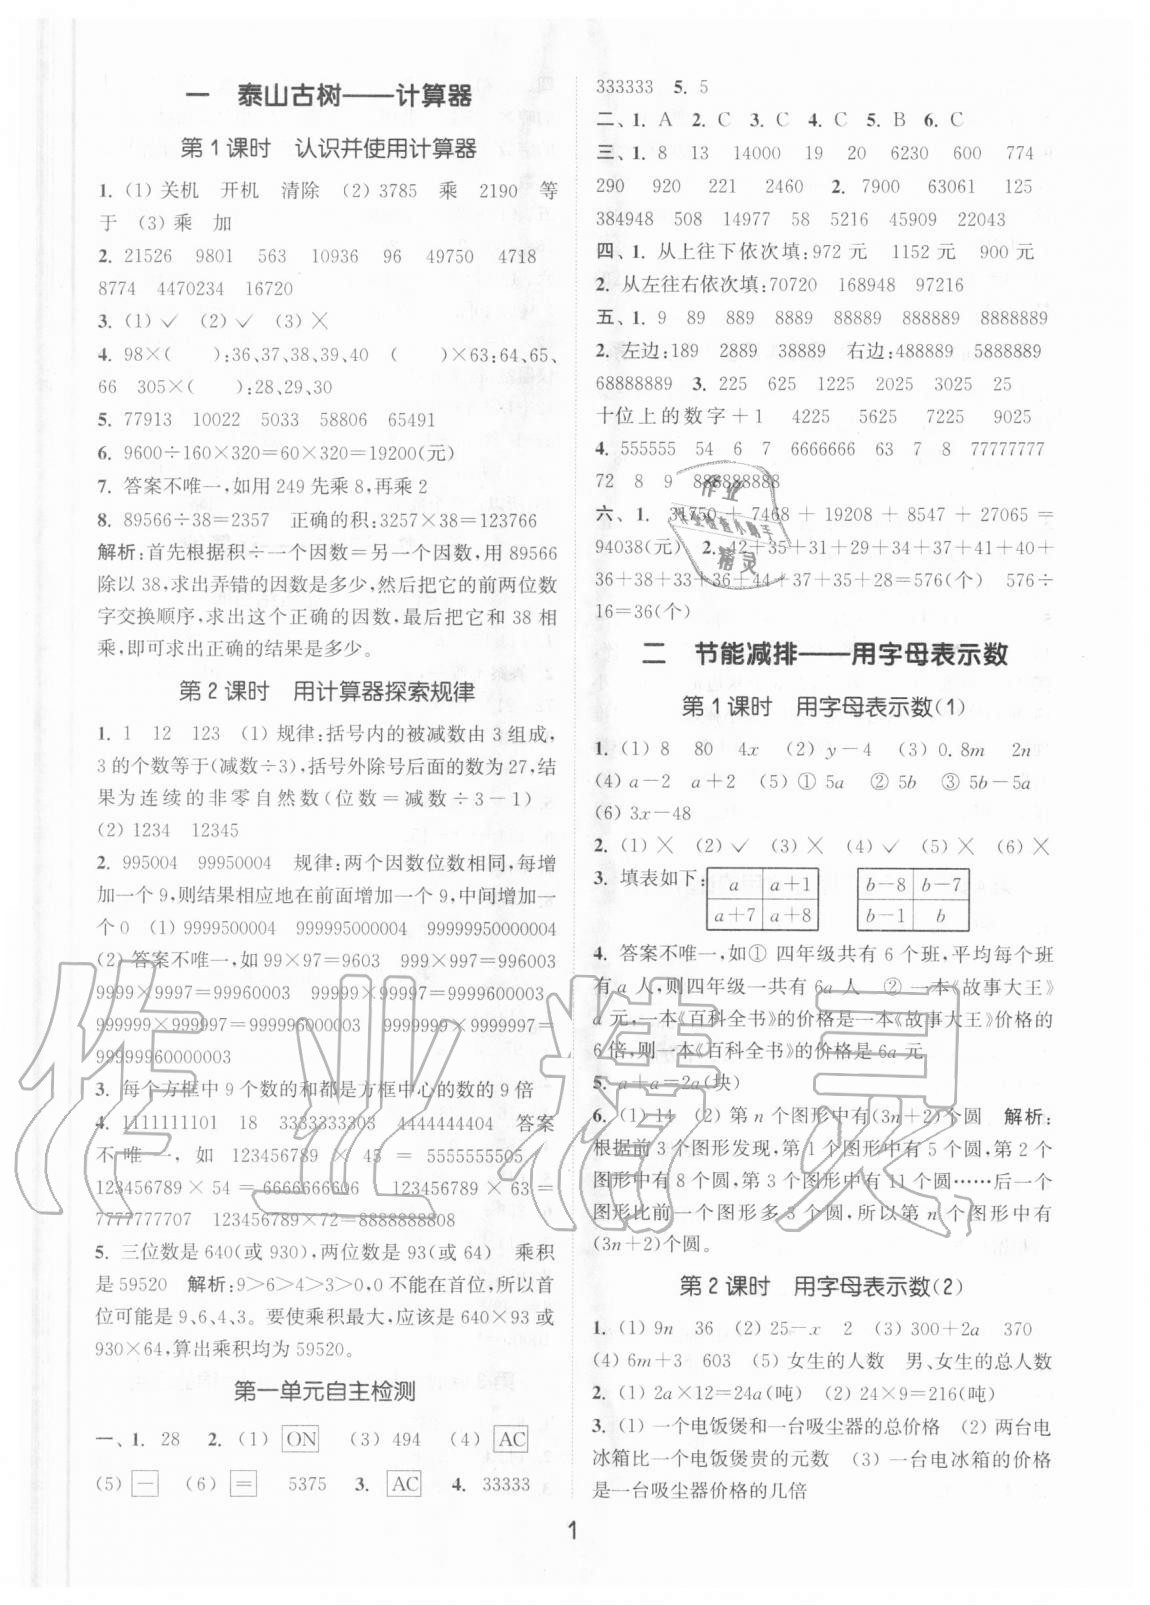 一 泰山古树——计算器
第1课时 认识并使用计算器
1. (1)关机 开机 清除 (2)3785 乘 2190 等
于 (3)乘 加
2. 21526 9801 563 10936 96 49750 4718
8774 4470234 16720
3. (1)✓ (2)✓ (3)×
4. 98×( ):36,37,38,39,40 ( )×63:64,65,
66 305×( ):28,29,30
5. 77913 10022 5033 58806 65491
6. 9600÷160×320=60×320=19200(元)
7. 答案不唯一,如用 249 先乘 8,再乘 2
8. 89566÷38=2357 正确的积:3257×38=123766
解析:首先根据积÷一个因数=另一个因数,用 89566
除以 38,求出弄错的因数是多少,然后把它的前两位数
字交换顺序,求出这个正确的因数,最后把它和 38 相
乘,即可求出正确的结果是多少。
第2课时 用计算器探索规律
1. 1 12 123 (1)规律:括号内的被减数由 3 组成,
3 的个数等于(减数÷3),括号外除号后面的数为 27,结
果为连续的非零自然数(位数=减数÷3-1)
(2) 1234 12345
2. 995004 99950004 规律:两个因数位数相同,每增
加一个 9,则结果相应地在前面增加一个 9,中间增加一
个 0 (1) 9999500004 999995000004 99999950000004
(2)答案不唯一,如 99×97=9603 999×997=996003
9999×9997=99960003 99999×99997=9999600003
999999×999997=999996000003 9999999×9999997=
99999960000003
3. 每个方框中 9 个数的和都是方框中心的数的 9 倍
4. 1111111101 18 3333333303 4444444404 答案
不唯一,如 123456789×45=5555555505
123456789×54=6666666606 123456789×63=
7777777707 123456789×72=8888888808
5. 三位数是 640(或 930),两位数是 93(或 64) 乘积
是 59520 解析:9>6>4>3>0,0 不能在首位,所以首
位可能是 9、6、4、3。要使乘积最大,应该是 640×93 或
930×64,算出乘积均为 59520。
第一单元自主检测
一、1. 28 2. (1) ON (3) 494 (4) AC
(5) - (6) = 5375 3. AC 4. 33333
333333 5. 5
二、1. A 2. C 3. C 4. C 5. B 6. C
三、1. 8 13 14000 19 20 6230 600 774
290 920 221 2460 2. 7900 63061 125
384948 508 14977 58 5216 45909 22043
四、1. 从上往下依次填:972 元 1152 元 900 元
2. 从左往右依次填:70720 168948 97216
五、1. 9 89 889 8889 88889 888889 8888889
2. 左边:189 2889 38889 右边:488889 5888889
68888889 3. 225 625 1225 2025 3025 25
十位上的数字+1 4225 5625 7225 9025
4. 555555 54 6 7 6666666 63 7 8 77777777
72 8 9 888888888
六、1. 31750 + 7468 + 19208 + 8547 + 27065 =
94038(元) 2. 42+35+31+29+34+37+41+40+
36+38+33+36+44+37+35+28=576(个) 576÷
16=36(个)
二 节能减排——用字母表示数
第1课时 用字母表示数(1)
1. (1) 8 80 4x (2) y-4 (3) 0.8m 2n
(4) a-2 a+2 (5) ① 5a ② 5b ③ 5b-5a
(6) 3x-48
2. (1)× (2)✓ (3)× (4)✓ (5)× (6)×
3. 填表如下: a a+1 b-8 b-7
a+7 a+8 b-1 b
4. 答案不唯一,如① 四年级共有 6 个班,平均每个班
有 a 人,则四年级一共有 6a 人 ② 一本《故事大王》
a 元,一本《百科全书》的价格是一本《故事大王》价格的
6 倍,则一本《百科全书》的价格是 6a 元
5. a+a=2a(块)
6. (1) 14 (2) 第 n 个图形中有(3n+2)个圆 解析:
根据前 3 个图形发现,第 1 个图形中有 5 个圆,第 2 个
图形中有 8 个圆,第 3 个图形中有 11 个圆……后一个
图形比前一个图形多 3 个圆,所以第 n 个图形中有
(3n+2)个圆。
第2课时 用字母表示数(2)
1. (1) 9n 36 (2) 25-x 2 (3) 300+2a 370
(4) 6m+3 603 (5) 女生的人数 男、女生的总人数
2. (1) 2a×12=24a(吨) (2) 24×9=216(吨)
3. (1) 一个电饭煲和一台吸尘器的总价格 (2) 两台电
冰箱比一个电饭煲贵的元数 (3) 一台电冰箱的价格
是一台吸尘器价格的几倍
1
作业精灵
作业
精灵